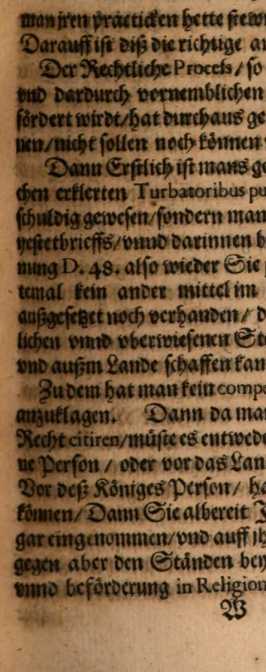 man jren práeticken hette stew
Darauff ist diß die richtige an
Der Rechtliche Proceß / so
vnd dardurch vornemblichen
fördert wirdt / hat durchaus ge
nen / nicht sollen noch können
Dann Erstlich ist mans ge
chen erklerten Turbatoribus pu
schuldig gewesen / sondern man
yestetbrieffs / vnnd darinnen b
nung D. 48. also wieder Sie
temal kein ander mittel im
außgesetzet noch verhanden / d
lichen vnnd vberwiesenen Ste
vnd außm Lande schaffen kan
Zu dem hat man kein compe
anzuklagen. Dann da man
Recht citiren / müste es entwed
ne Person / oder vor das Lan
Vor deß Königes Person / ha
können / Dann Sie albereit J
gar eingenommen / vnd auff jh
gegen aber den Ständen bey
vnnd beförderung in Religion
W